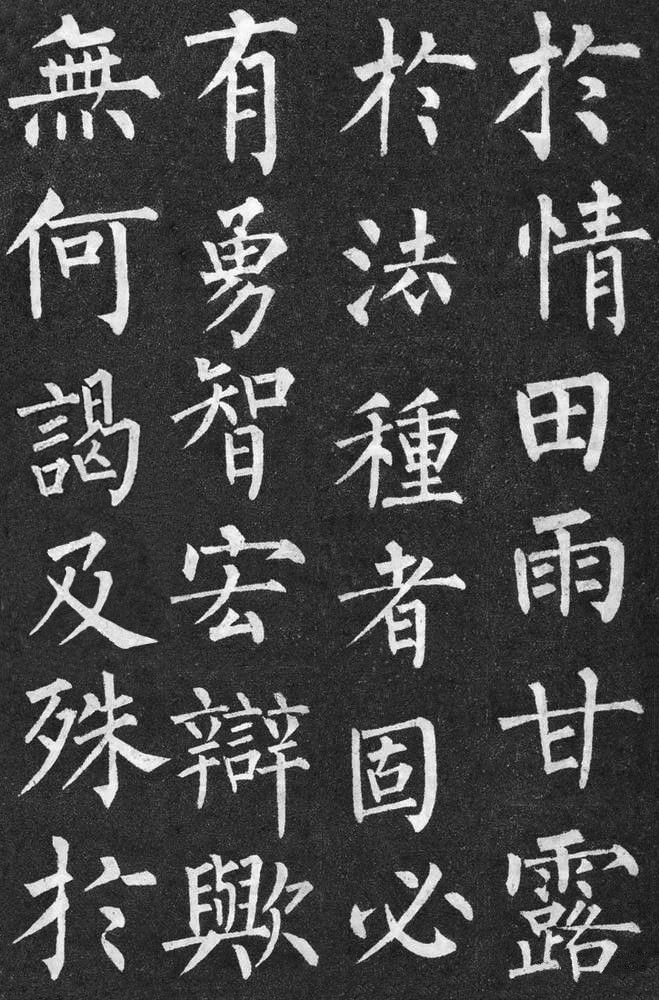 於情田雨甘露
於法種者固必
有勇智宏辯歟
無何謁及殊於